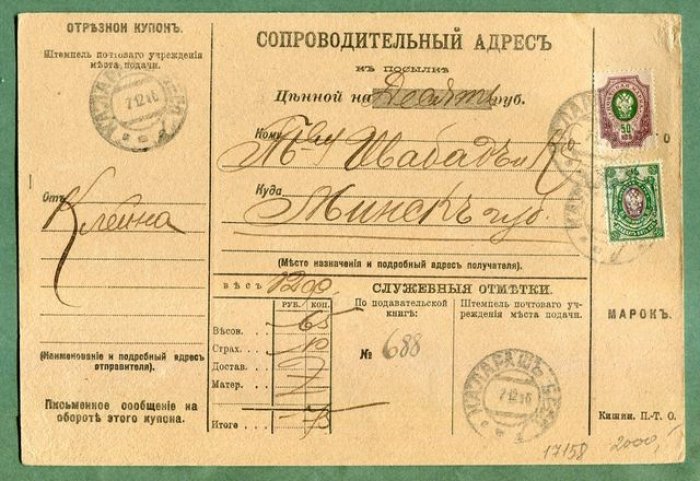 ОТРѢЗНОЙ КУПОНЪ.
Штемпель почтоваго учрежденія
мѣста подачи.
КАЛАРАШЪ БЕСС.
7 12 16
Отъ
Клейна
(Наименованіе и подробный адресъ
отправителя).
Письменное сообщеніе на
оборотѣ этого купона.
СОПРОВОДИТЕЛЬНЫЙ АДРЕСЪ
КЪ ПОСЫЛКѢ
Цѣнной на Десять руб.
Кому
Т-ву Шабадъ и К
Куда
Минскъ губ.
(Мѣсто назначенія и подробный адресъ получателя).
вѣсъ 1200
РУБ. КОП.
Вѣсов. . . . 65
Страх. . . . 10
Достав. . .
Матер. . .
Итого . . . 75
СЛУЖЕБНЫЯ ОТМѢТКИ.
По подавательской
книгѣ:
№ 688
Штемпель почтоваго уч-
режденія мѣста подачи.
КАЛАРАШЪ БЕСС.
7 12 16
50
МАРОКЪ.
Кишин. П.-Т. О.
17158 2000,-